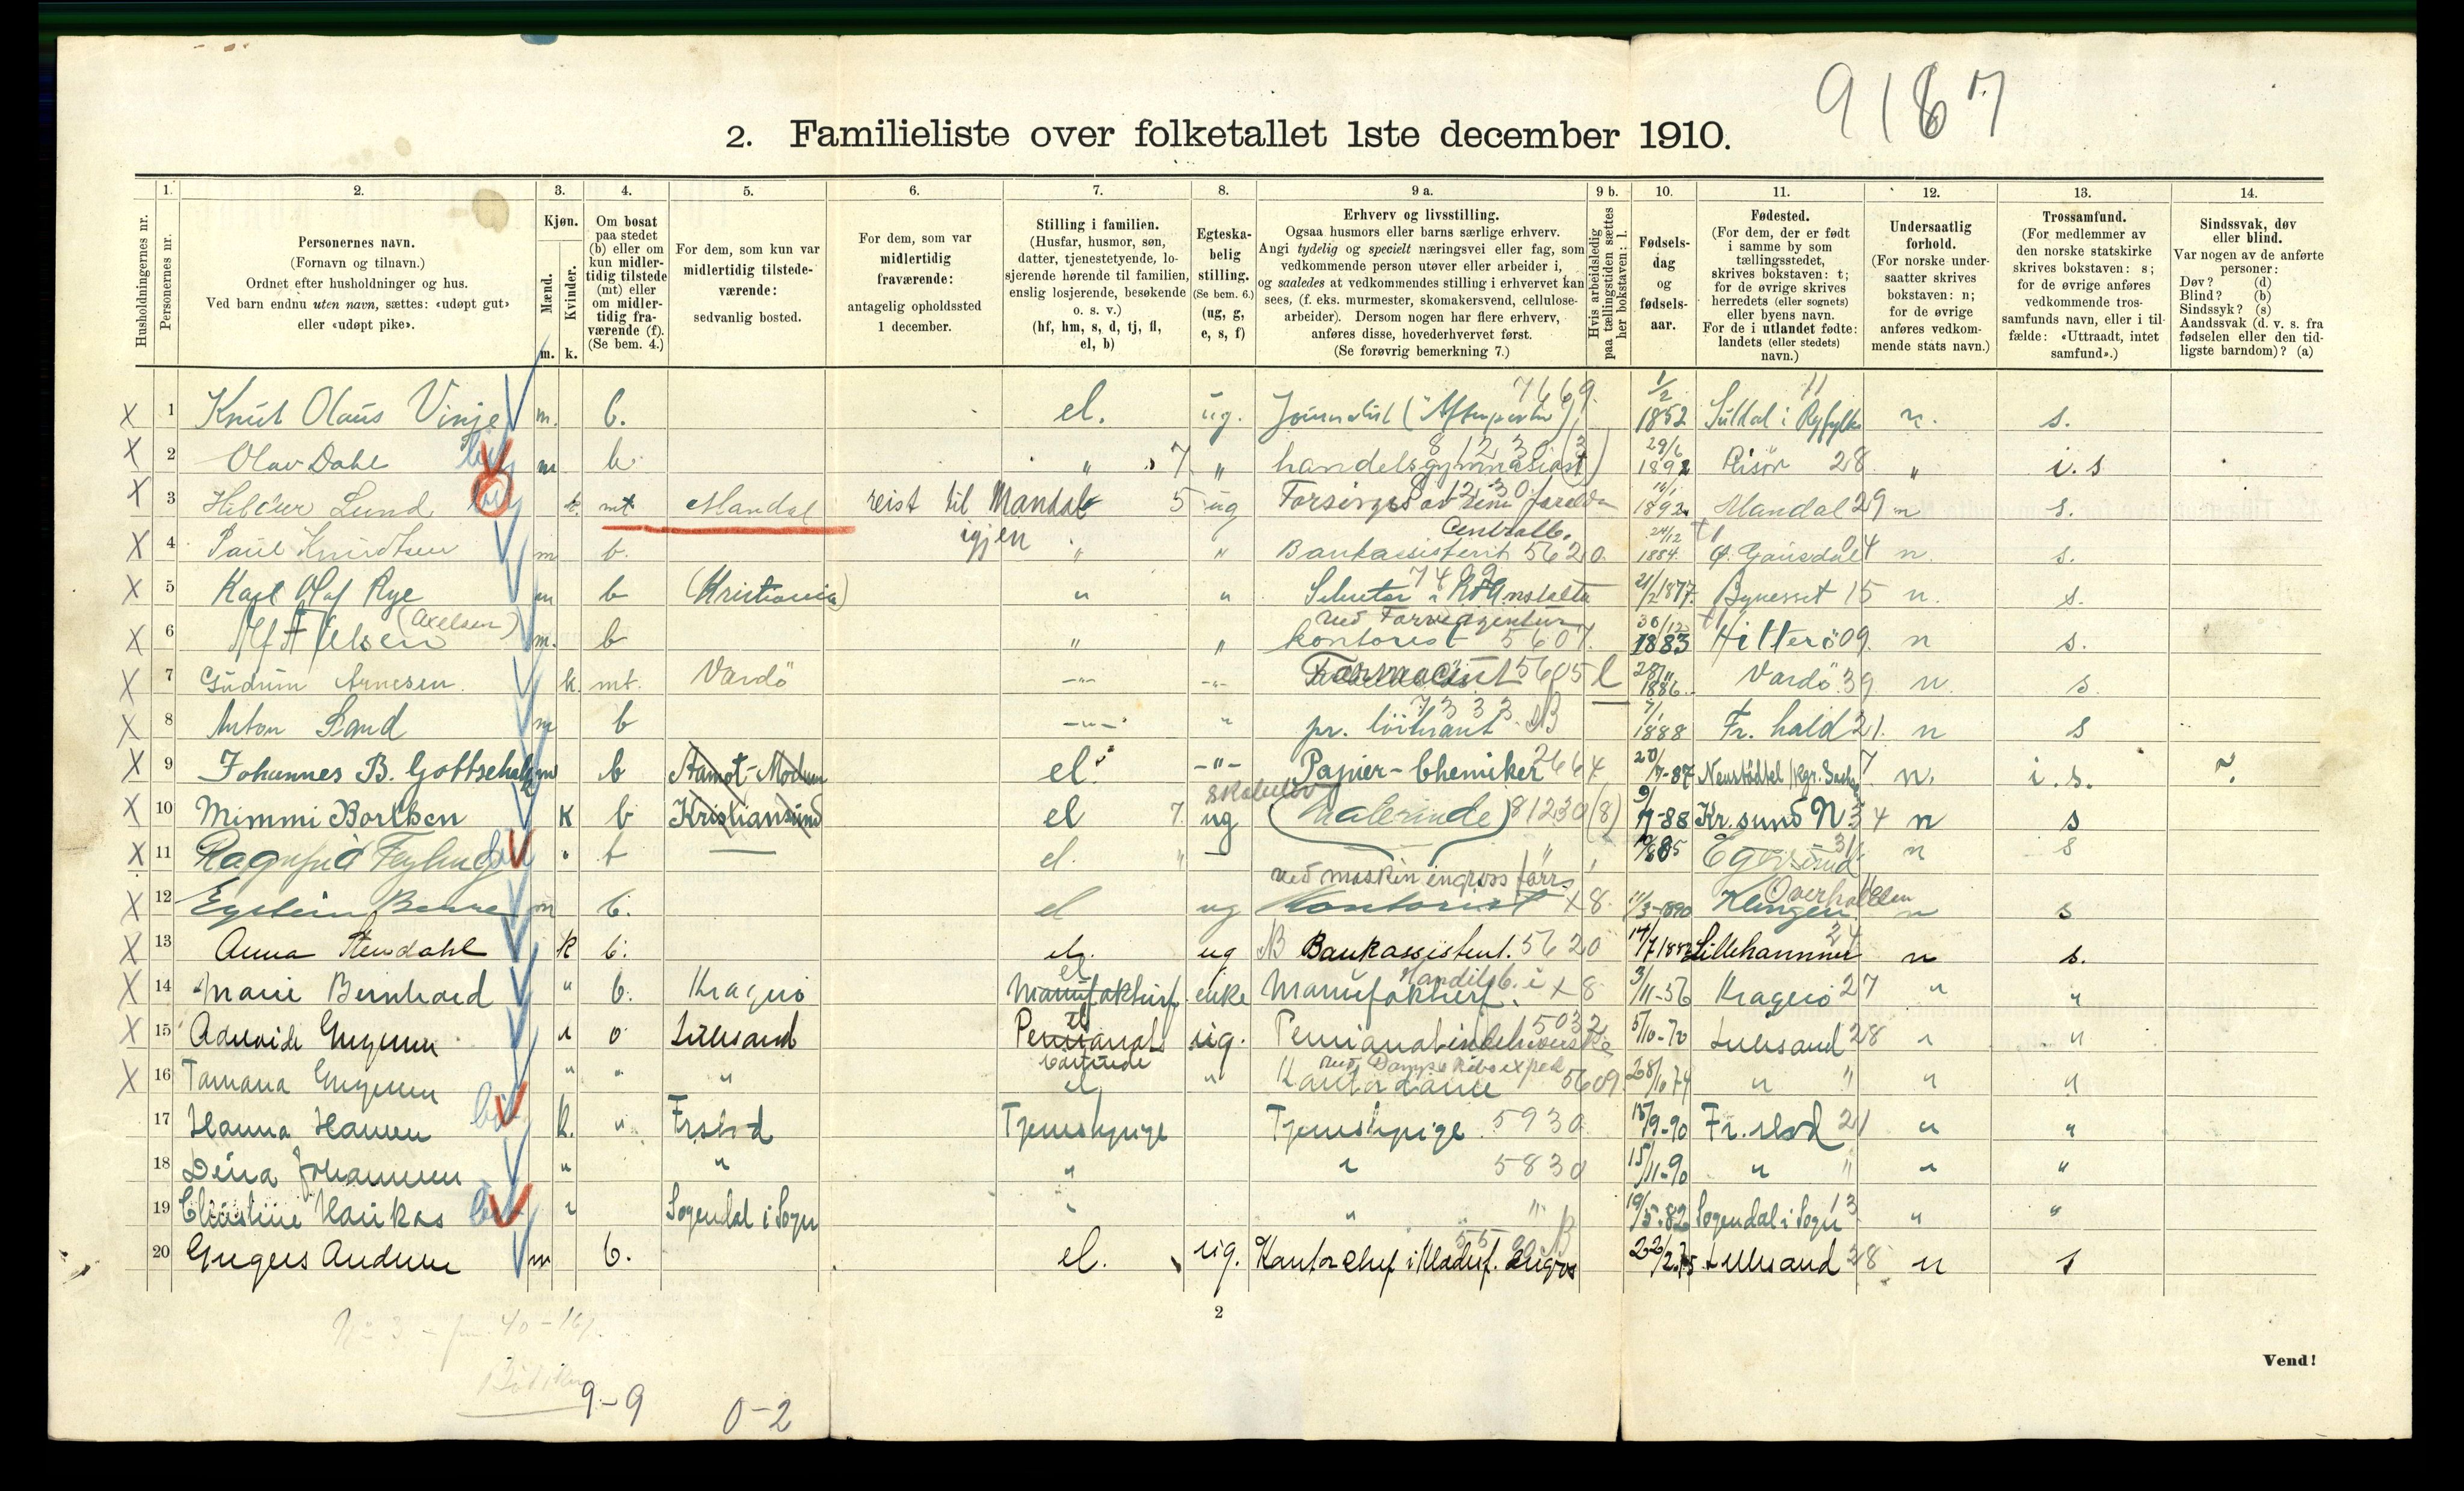 9187
2. Familieliste over folketallet 1ste december 1910.
Husholdningernes nr.
1. Personernes nr.
2. Personernes navn.
(Fornavn og tilnavn.)
Ordnet efter husholdninger og hus.
Ved barn endnu uten navn, sættes: «udøpt gut»
eller «udøpt pike».
3. Kjøn.
Mænd. m.
Kvinder. k.
4. Om bosat
paa stedet
(b) eller om
kun midler-
tidig tilstede
(mt) eller
om midler-
tidig fra-
værende (f).
(Se bem. 4.)
5. For dem, som kun var
midlertidig tilstede-
værende:
sedvanlig bosted.
6. For dem, som var
midlertidig
fraværende:
antagelig opholdssted
1 december.
7. Stilling i familien.
(Husfar, husmor, søn,
datter, tjenestetyende, lo-
sjerende hørende til familien,
enslig losjerende, besøkende
o. s. v.)
(hf, hm, s, d, tj, fl,
el, b)
8. Egteska-
belig
stilling.
(Se bem. 6.)
(ug, g,
e, s, f)
9 a. Erhverv og livsstilling.
Ogsaa husmors eller barns særlige erhverv.
Angi tydelig og specielt næringsvei eller fag, som
vedkommende person utøver eller arbeider i,
og saaledes at vedkommendes stilling i erhvervet kan
sees, (f. eks. murmester, skomakersvend, cellulose-
arbeider). Dersom nogen har flere erhverv,
anføres disse, hovederhvervet først.
(Se forøvrig bemerkning 7.)
9 b. Hvis arbeidsledig
paa tællingstiden sættes
her bokstaven: l.
10. Fødsels-
dag
og
fødsels-
aar.
11. Fødested.
(For dem, der er født
i samme by som
tællingsstedet,
skrives bokstaven: t;
for de øvrige skrives
herredets (eller sognets)
eller byens navn.
For de i utlandet fødte:
landets (eller stedets)
navn.)
12. Undersaatlig
forhold.
(For norske under-
saatter skrives
bokstaven: n;
for de øvrige
anføres vedkom-
mende stats navn.)
13. Trossamfund.
(For medlemmer av
den norske statskirke
skrives bokstaven: s;
for de øvrige anføres
vedkommende tros-
samfunds navn, eller i til-
fælde: «Uttraadt, intet
samfund».)
14. Sindssvak, døv
eller blind.
Var nogen av de anførte
personer:
Døv? (d)
Blind? (b)
Sindssyk? (s)
Aandssvak (d. v. s. fra
fødselen eller den tid-
ligste barndom)? (a)
X 1 Knut Olaus Vinje m. b. el. ug. Journalist (Aftenposten) 7669 1/2 1852 Suldal i Ryfylke 11 n. s.
X 2 Olav Dahl m b " 7 " handelsgymnasiast 81230 (3) 29/6 1892 Risör 28 " i. s
X 3 Lund mt Mandal reist til Mandal igjen 5 ug 1230 1892 Mandal 29 n s.
X 4 Paul Knudtsen m b. " " Centralb. Bankassistent 5620 24/12 1884 Gausdal 04 n. s.
X 5 Karl Olaf Rye m b (Kristiania) " " 7409 21/2 1877 Bynesset 15 n. s.
X 6 Alf Olsen (Axelsen) m. b " " ved Farveagentur kontorist 5607 30/12 1883 Hitterö 09. n s.
X 7 Gudrun Arnesen k. mt. Vardö -"- -"- Farmaceut 5605 l 1886 Vardö 39 n. s.
X 8 Anton Sand m b -"- " pr. löitnant 7333 1888 Fr. hald 21. n s
X 9 Johannes B. Gottschalk m b Aamot-Modum el. -"- Papier-Chemiker 2664 20/7-87 n. i. s.
X 10 Mimmi Borthen K b Kristiansund el 7. ug Skoleelev (Malerinde) 81230 (8) 9/7-88 Kr. sund N 34 n s
X 11 el. " Egersund 31 n s
X 12 m b. el ug ved maskin engros forr. Kontorist x 8. 11/3-1890 Klingen Overhallen n s
X 13 Anna Stendahl k b. el. ug Bankassistent. 5620 14/7 1882 Lillehammer 24 n s.
X 14 Marie Bernhard " b. Kragerö Manufakturf. el enke Manufakturf. Handelsb. i x 8 3/11-56 Kragerö 27 " "
X 15 Lillesand Pensionat el ug. 5032 5/10-70 Lillesand 28 " "
X 16 " " " el " ved Dampskibsexped Kontordame 5609 28/10 74 " " " "
17 Hanna Hansen k. " Frstad Tjenestepige Tjenestepige 5930 15/9-90 Fr. stad 21 " "
18 Dina Johannesen " " " " 5830 15/11-90 " " " "
19 Christine Haukas " Sogendal i Sogn " " " 19/5-82 Sogendal i Sogn 13 " "
20 Gregers Andersen m b. el. ug. Kontorchef i engros 22/2 75 Lillesand 28 n s
2
Vend!
9-9
0-2